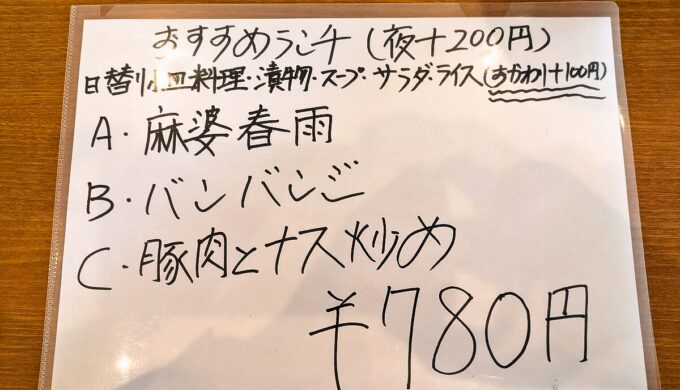 おすすめランチ(夜+200円)
日替り小皿料理・漬物・スープ・サラダ・ライス(おかわり+100円)
A・麻婆春雨
B・バンバンジ
C・豚肉とナス炒め
¥780円